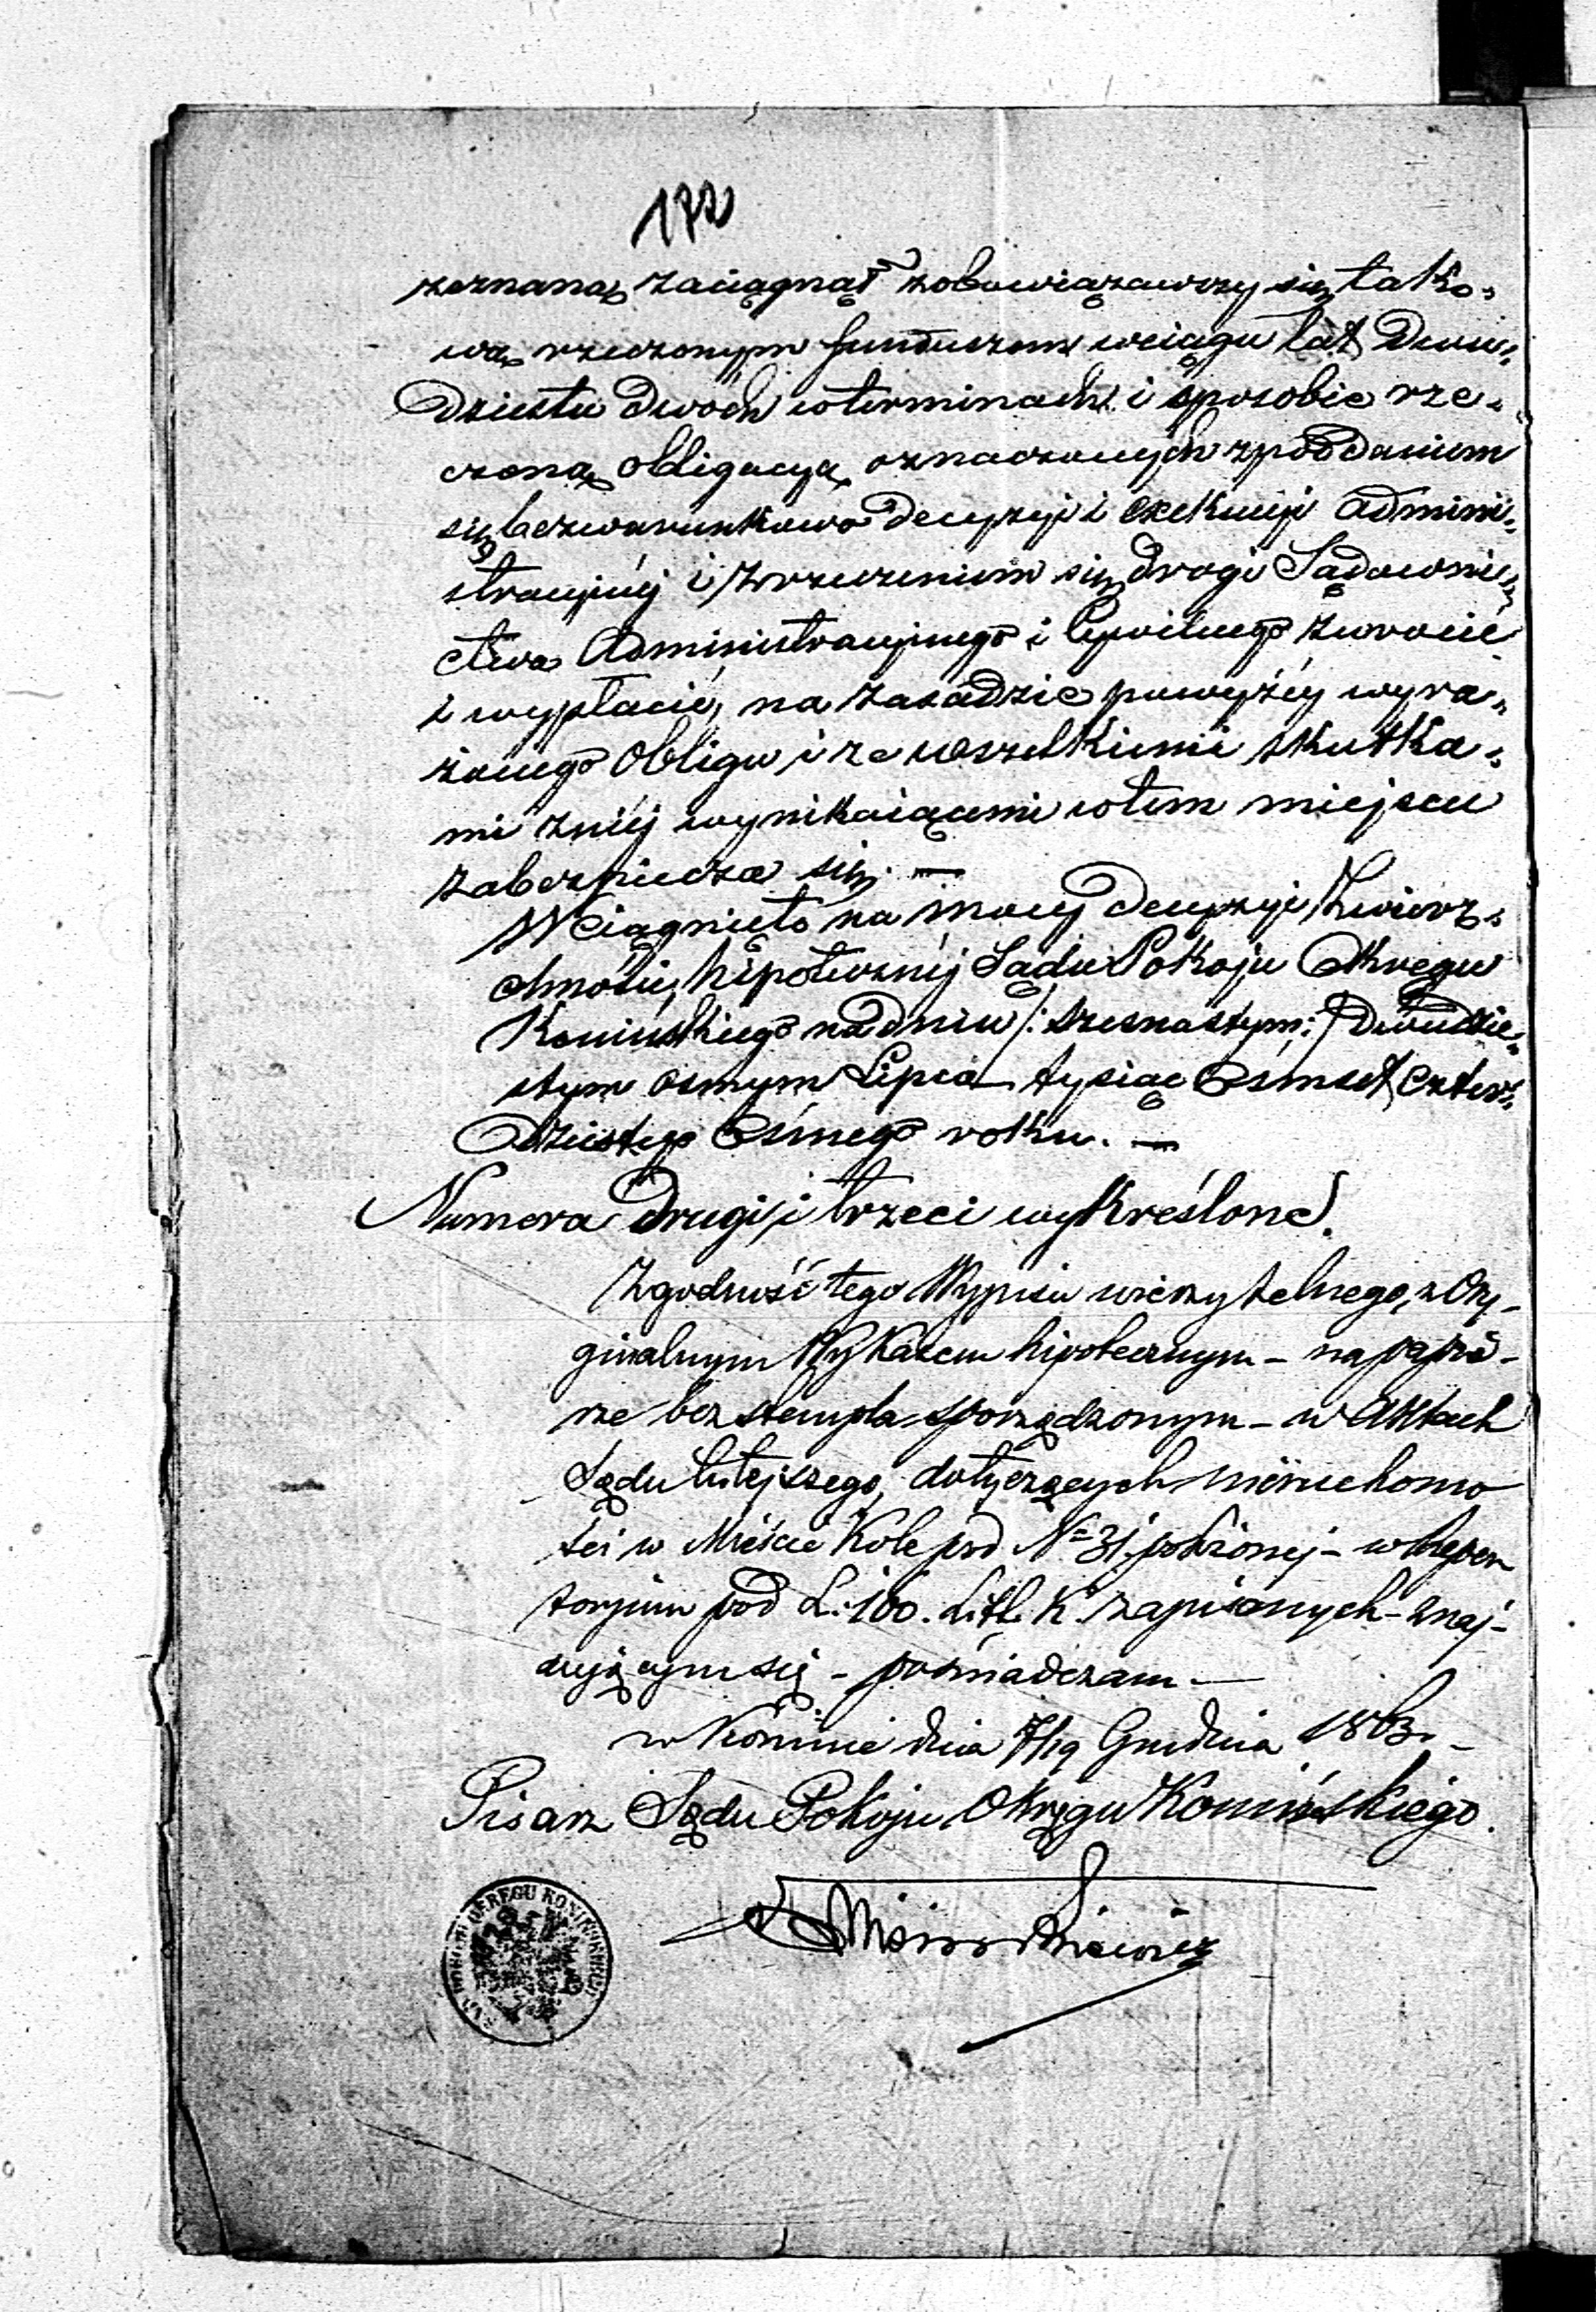 172
zeznaną zaciągnął zobowiązawszy się tako„
wą rzeczonym funduszom wciągu lat Dwu„
Dziestu dwóch wterminach i sposobie rze„
czoną obligacyą oznaczonych zpoddaniem
się bezwarunkowo decyzyi i exekucyi Admini„
stracyjnéj i zrzeczeniem się drogi Sądowni„
ctwa Administracyjnego i Cywilnego zwrócić
i wypłacić, na zasadzie powyżéy wyra„
żonego obligu i ze wszelkiemi skutka„
mi zniéj wynikaiącemi wtem miejscu
zabezpiecza się. —
Wciągnięto na mocy decyzyi Zwierz„
chności hipotecznéj Sądu Pokoju Okręgu
Konińskiego na dniu /: szesnastym :/ Dwudzie„
stym osmym Lipca tysiąc Ośmset czter„
dziestego Ósmego roku. —
Numera drugi i trzeci wykreślone.
Zgodność tego Wypisu wierzytelnego, z Ory-
ginalnym Wykazem hipotecznym - na papie-
rze bez stempla sporządzonym - w Aktach
Sądu tutejszego, dotyczących nieruchomo
ści w Mieście Kole pod N= 31. położonéj - w Reper
torjum pod L: 100. Litt. K. zapisanych - znaj-
dującym się - poświadczam —
w Koninie dnia 7/19 Grudnia 1863. -
Pisarz Sądu Pokoju Okręgu Konińskiego.
OKRĘGU KONIŃSKIEGO